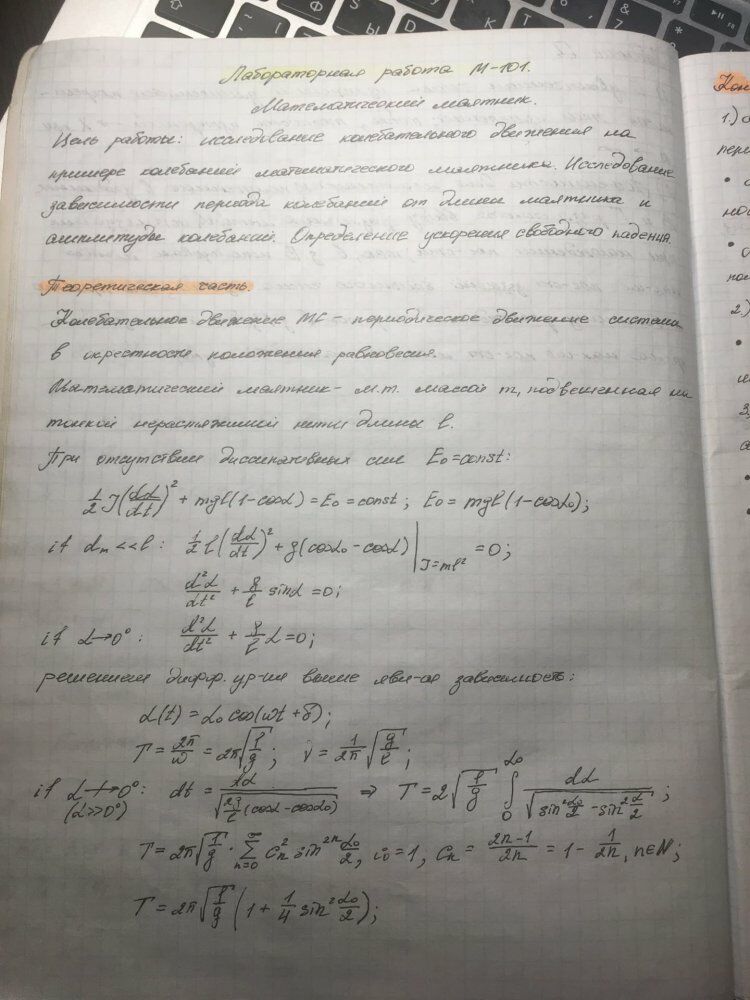 Лабораторная работа М-101.
Математический маятник.
Цель работы: исследование колебательного движения на
примере колебаний математического маятника. Исследование
зависимости периода колебаний от длины маятника и
амплитуды колебаний. Определение ускорения свободного падения.
Теоретическая часть.
Колебательное движение МС - периодическое движение системы
в окрестности положения равновесия.
Математический маятник - м.т. массой m, подвешенная на
тонкой нерастяжимой нити длины l.
При отсутствии диссипативных сил E₀=const:
1/2 J(dα/dt)² + mgl(1-cosα) = E₀ = const; E₀ = mgl(1-cosα₀);
if dₘ<<l: 1/2 l(dα/dt)² + g(cosα₀-cosα)|J=ml² = 0;
d²α/dt² + g/l sinα = 0;
if α→0°: d²α/dt² + g/l α = 0;
решением дифф. ур-ия выше явл-ся зависимость:
α(t) = α₀ cos(ωt + δ);
T = 2π/ω = 2π√(l/g); ν = 1/2π √(g/l);
if α↛0°: dt = dα/√(2g/l (cosα-cosα₀)) ⇒ T = 2√(l/g) ∫₀^α₀ dα/√(sin² α₀/2 - sin² α/2);
(α>>0°)
T = 2π√(l/g) · Σ(n=0, ∞) cₙ² sin²ⁿ α₀/2, c₀=1, cₙ = (2n-1)/2n = 1 - 1/2n, n∈N;
T = 2π√(l/g) (1 + 1/4 sin² α₀/2);
Кон
1.)
пери
нос
пол
2.)
3.